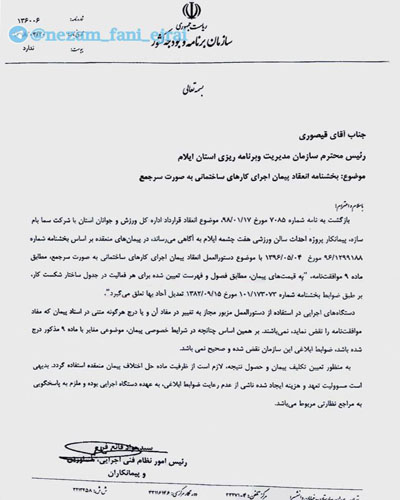 ریاست جمهوری
سازمان برنامه و بودجه کشور
۱۳۶۰۰۶
ندارد
@nezam_fani_ejrai
بسمه تعالی
جناب آقای قیصوری
رئیس محترم سازمان مدیریت وبرنامه ریزی استان ایلام
موضوع: بخشنامه انعقاد پیمان اجرای کارهای ساختمانی به صورت سرجمع
باسلام و احترام؛
بازگشت به نامه شماره ۷۰۸۵ مورخ ۹۸/۰۱/۱۷، موضوع انعقاد قرارداد اداره کل ورزش و جوانان استان با شرکت سما بام
سازه، پیمانکار پروژه احداث سالن ورزشی هفت چشمه ایلام به آگاهی می‌رساند، در پیمان‌های منعقده بر اساس بخشنامه شماره
۹۶/۱۲۹۹۱۸۸ مورخ ۱۳۹۶/۰۵/۰۴ موضوع دستورالعمل انعقاد پیمان اجرای کارهای ساختمانی به صورت سرجمع، مطابق
ماده ۹ موافقت‌نامه، "به قیمت‌های پیمان، مطابق فصول و فهرست تعیین شده برای هر فعالیت در جدول ساختار شکست کار،
بر طبق ضوابط بخشنامه شماره ۱۰۱/۱۷۳۰۷۳ مورخ ۱۳۸۲/۰۹/۱۵ تعدیل آحاد بها تعلق می‌گیرد".
دستگاه‌های اجرایی در استفاده از دستورالعمل مزبور مجاز به تغییر در مفاد آن و یا درج هرگونه متنی در اسناد پیمان که مفاد
موافقت‌نامه را نقض نماید، نمی‌باشند. بر همین اساس چنانچه در شرایط خصوصی پیمان، موضعی مغایر با ماده ۹ مذکور درج
شده باشد، ضوابط ابلاغی این سازمان نقض شده و صحیح نمی باشد.
به منظور تعیین تکلیف پیمان و حصول نتیجه، لازم است از ظرفیت ماده حل اختلاف پیمان منعقده استفاده گردد. بدیهی
است مسوولیت تعهد و هزینه ایجاد شده ناشی از عدم رعایت ضوابط ابلاغی، به عهده دستگاه اجرایی بوده و ملزم به پاسخگویی
به مراجع نظارتی مربوط می‌باشد.
سیدجواد قانع فر
رئیس امور نظام فنی اجرایی، مشاورین
و پیمانکاران